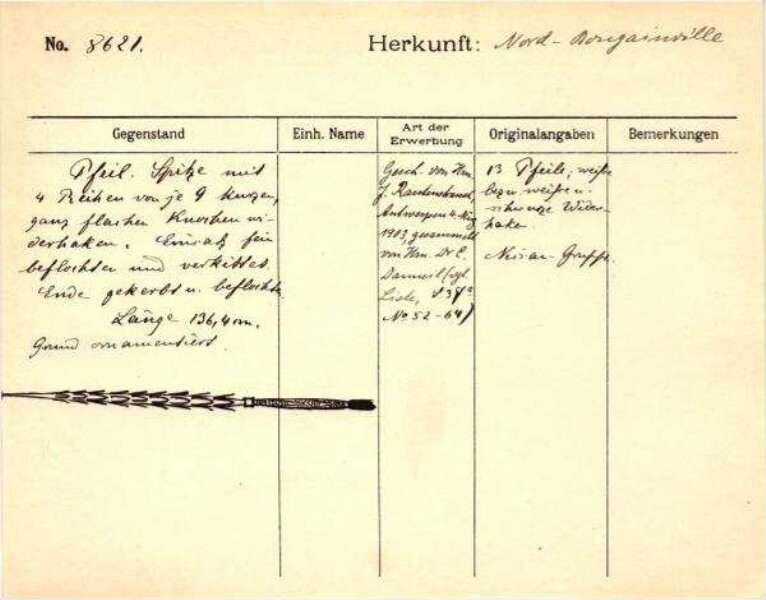 No. 8621.
Herkunft: Nord-Bougainville
Gegenstand
Einh. Name
Art der Erwerbung
Originalangaben
Bemerkungen
Pfeil. Spitze mit
4 Reihen von je 9 kurzen,
ganz flachen Knochenwi-
derhaken. Einsatz fein
beflochten und verkittet.
Ende gekerbt u. beflochten.
Länge 136,4 cm.
Grund ornamentiert.
Gesch. von Hrn.
J. Rautenstrauch,
Antwerpen
1903, gesammelt
von Hrn. Dr E.
(vgl.
Liste,
No 52-64)
13 Pfeile, weiße
bezw weiße u.
schwarze Wider-
haken.